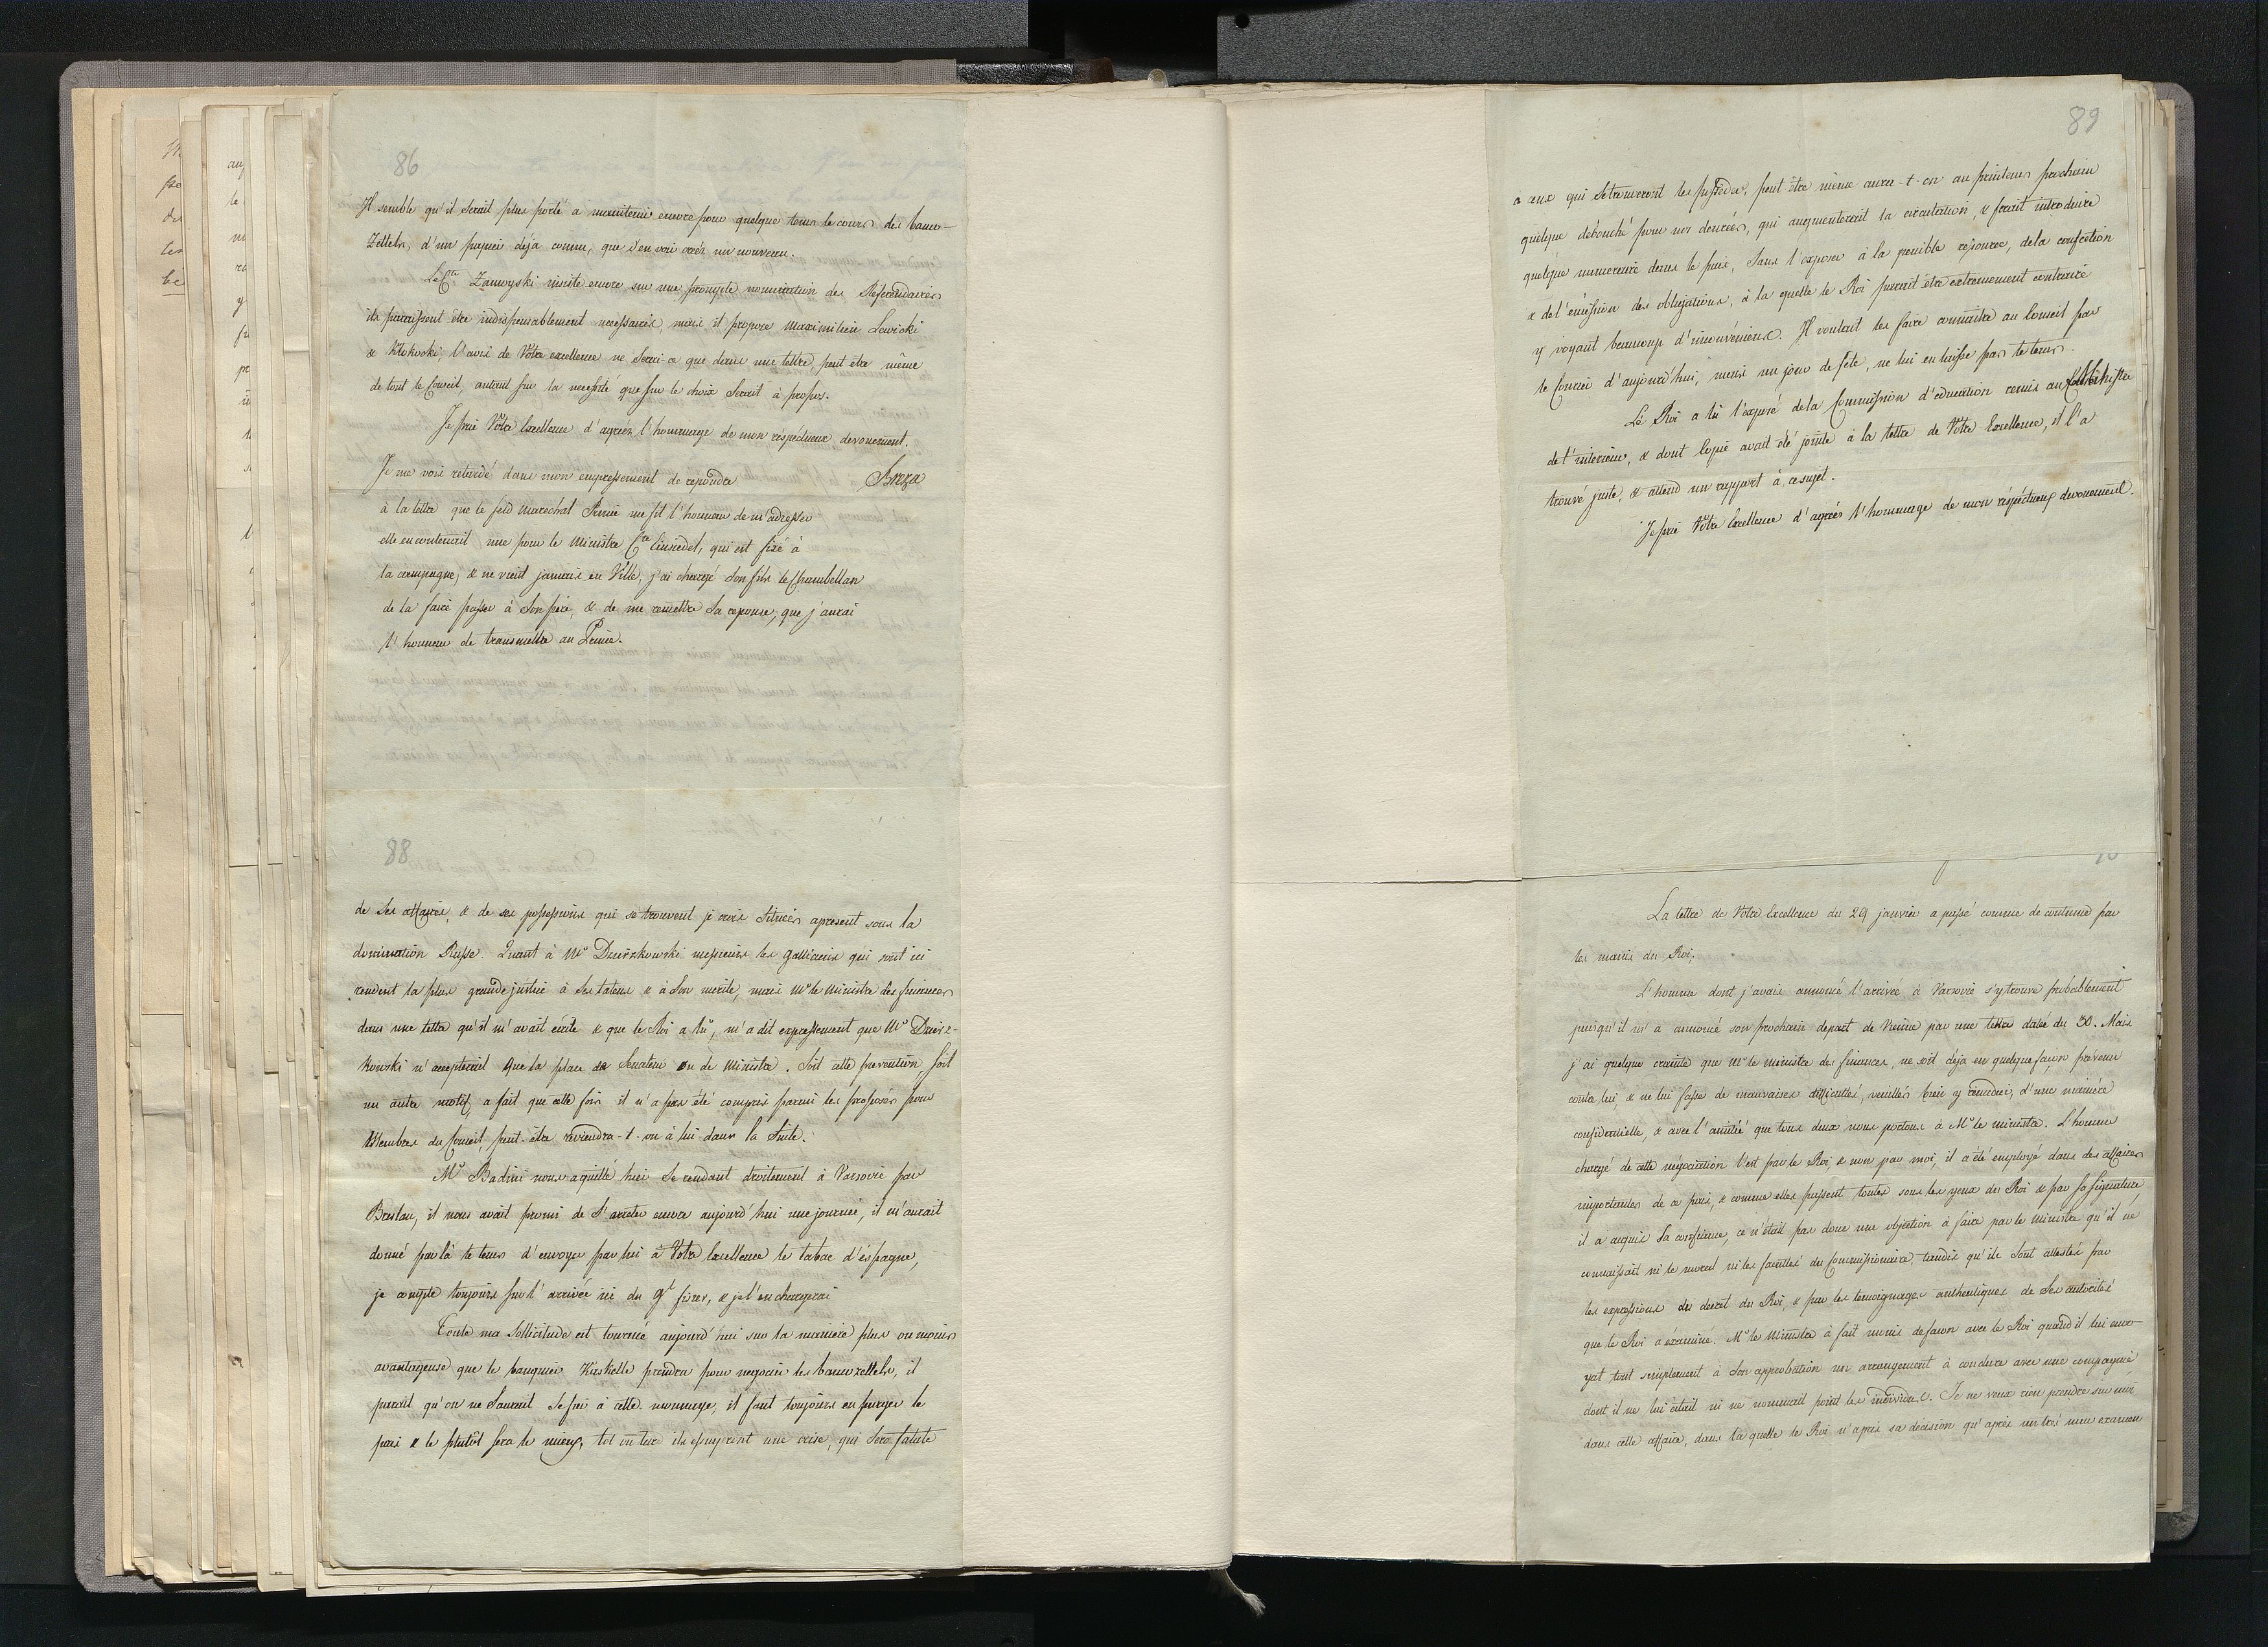 86
Il semble qu'il serait plus porté a maintenir encore pour quelque tems le cours des banco-
Zettels, d'un papier déja connu, que d'en voir créér un nouveau.
Le Cte Zamoyski insiste encore sur une prompte nomination des Referendaires
ils paraissent être indispensablement necessaires, mais il propose Maximilien Lewicki
& Kłokocki, l'avis de Votre excellence ne serai-ce que dans une lettre, peut être même
de tout le Conseil, autant sur la necessité que sur le choix serait à propos.
Je prie Votre Excellence d'agréer l'hommage de mon respectueux devouement.
Breza
Je me vois retardé dans mon empressement de repondre
à la lettre que le feld marechal Prince me fit l'honneur de m'adresser
elle en contenait une pour le Ministre Cte Einsiedel, qui est fixé à
la campagne, & ne vient jamais en Ville, j'ai chargé son fils le Chambellan
de la faire passer à son père, & de me remettre sa reponse, que j'aurai
l'honneur de transmettre au Prince.
88
de ses affaires, & de ses possessions qui se trouvent je crois situées apresent sous la
domination Russe. Quant à Mr Dzierzkowski messieurs les galliciens qui sont ici
rendent la plus grande justice à ses talens & à son merite, mais Mr le Ministre des finances
dans une lettre qu'il m'avait écrite & que le Roi a lu, m'a dit expressement que Mr Dzierz-
kowski n'accepterait que la place de Senateur ou de Ministre. Soit cette prevention, soit
un autre motif, a fait que cette fois il n'a pas été compris parmi les proposés pour
Membres du Conseil, peut-être reviendra-t-on à lui dans la suite.
Mr Badini nous a quitté hier se rendant droitement à Varsovie par
Breslau, il nous avait promi de s'arreter encore aujourd'hui une journée, il m'aurait
donné par là le tems d'envoyer par lui à Votre Excellence le tabac d'éspagne,
je compte toujours sur l'arrivée ici du gl fiszer, & je l'en chargerai
Toute ma sollicitude est tournée aujourd'hui sur la maniere plus ou moins
avantageuse que le banquier Kaskelle prendra pour negocier les bancozettels, il
parait qu'on ne saurait se fier à cette monnaye, il faut toujours en purger le
pais & le plutôt sera le mieux, tot ou tard ils essuyeront une crise, qui sera fatale
89
a ceux qui se trouveront les posseder, peut être même aura-t-on au printems prochain
quelque débouché pour nos denrées, qui augmenterait la circulation, & ferait introduire
quelque numeraire dans le pais, sans l'exposer à la penible resource, de la confection
& de l'emission des obligations, à la quelle le Roi parait être extremement contraire
y voyant beaucoup d'inconvéniens. Il voulait les faire connaitre au Conseil par
le Courier d'aujourd'hui, mais un jour de fête, ne lui en laisse pas le tems.
Le Roi a lu l'exposé de la Commission d'education remis au Ministre
de l'interieur, & dont copie avait été jointe à la lettre de Votre Excellence, il l'a
trouvé juste, & attend un rapport à ce sujet.
Je prie Votre Excellence d'agréer l'hommage de mon réspectueux devouement.
La lettre de Votre Excellence du 29 janvier a passé comme de coutume par
les mains du Roi.
L'homme dont j'avais annoncé l'arrivée à Varsovie s'y trouve probablement
puisqu'il m'a annoncé son prochain depart de Vienne par une lettre datée du 30. Mais
j'ai quelque crainte que Mr le ministre des finances, ne soit déja en quelque façon prévenu
contre lui, & ne lui fasse de mauvaises difficultés, veuillés bien y remedier, d'une manière
confidentielle, & avec l'amitié que tous deux nous portons à Mr le ministre. L'homme
chargé de cette négociation l'est par le Roi, & non par moi, il a été employé dans des affaires
importantes de ce pais, & comme elles passent toutes sous les yeux du Roi & par sa signature
il a aquis sa confiance, ce n'était pas donc une objection à faire par le Ministre qu'il ne
connaissait ni le moral ni les facultés du Commissionaire, tandis qu'ils sont attestés par
les expressions du decret du Roi, & par les temoignages authentiques de ses autorités
que le Roi a examiné. Mr le Ministre à fait moins de façon avec le Roi quand il lui envo-
yat tout simplement à son approbation un arrangement à conclure avec une compagnie
dont il ne lui citait ni ne nommait point les individus. Je ne veux rien prendre sur moi
dans cette affaire, dans la quelle le Roi n'a pris sa decision qu'après un très mur examen